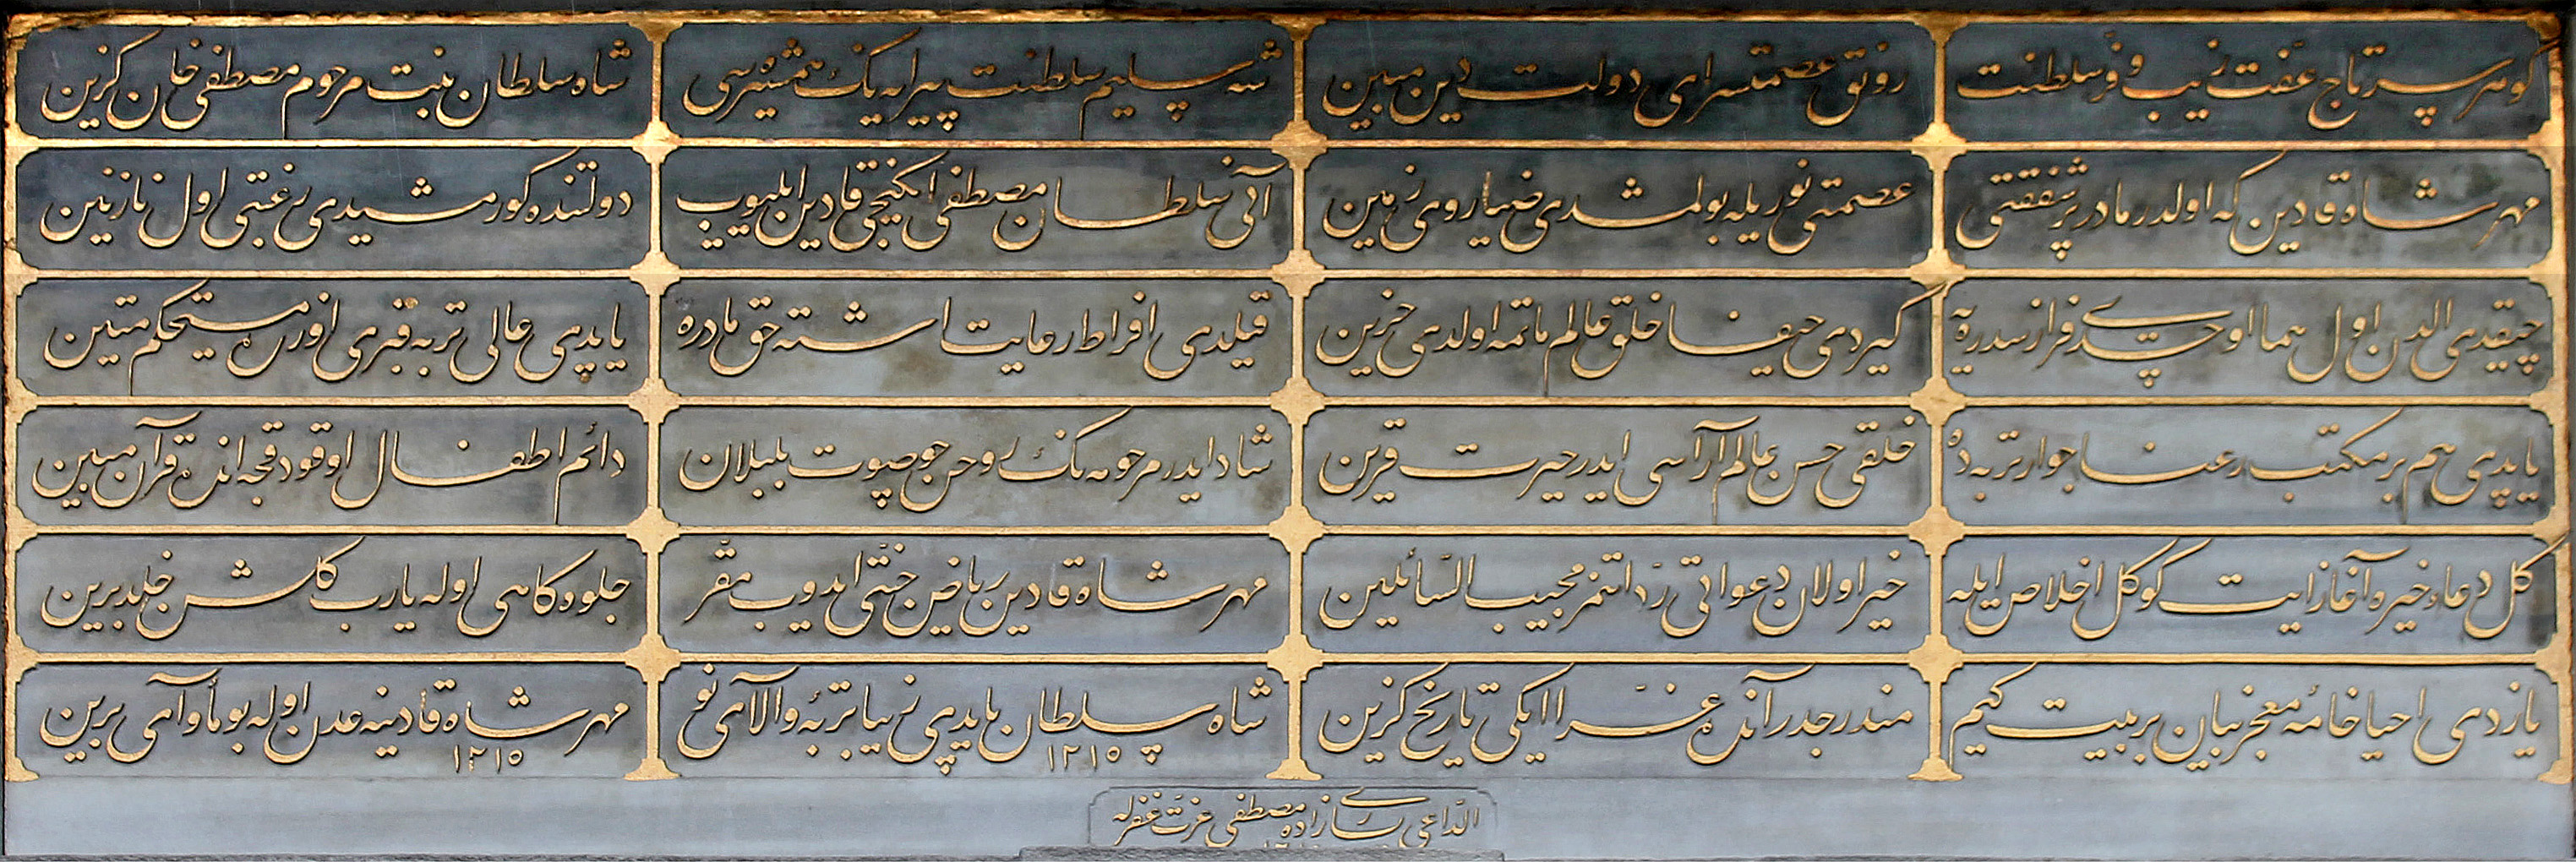 كوهر سرتاج عفت زيب و فر سلطنت
رونق عصمتسراى دولت دين مبين
شه سليم سلطنت پيرايه نك همشيره سى
شاه سلطان بنت مرحوم مصطفى خان كزين
مهرشاه قادين كه اولدر مادر پر شفقتى
عصمتى نوريله بولمشدى ضيا روى زمين
آنى سلطان مصطفى ايكنجى قادين ايليوب
دولتنده كورمشيدى رغبتى اول نازنين
چيقدى الدن اول هما اوچدى فراز سدره يه
كيردى حيفا خلق عالم ماتمه اولدى حزين
قيلدى افراط رعايت اشته حق مادره
ياپدى عالى تربه قبرى اوزره مستحكم متين
ياپدى هم بر مكتب رعنا جوار تربه ده
خلقى حسن عالم آراسى ايدر حيرت قرين
شاد ايدر مرحومه نك روحن چو صوت بلبلان
دائم اطفال اوقودقجه انده قرآن مبين
كل دعاء خيره آغاز ايت كوكل اخلاص ايله
خير اولان دعواتى رد ايتمز مجيب السائلين
مهرشاه قادين رياض جنتى ايدوب مقر
جلوه كاهى اوله يارب كلشن خلد برين
يازدى احيا خامه معجز بيان بر بيت كيم
مندرجدر آنده غرا ايكى تاريخ كزين
شاه سلطان ياپدى زيبا تربه والاى نو ١٢١٥
مهرشاه قادينه عدن اوله بو مأواى برين ١٢١٥
الداعى يسارى زاده مصطفى عزت غفرله